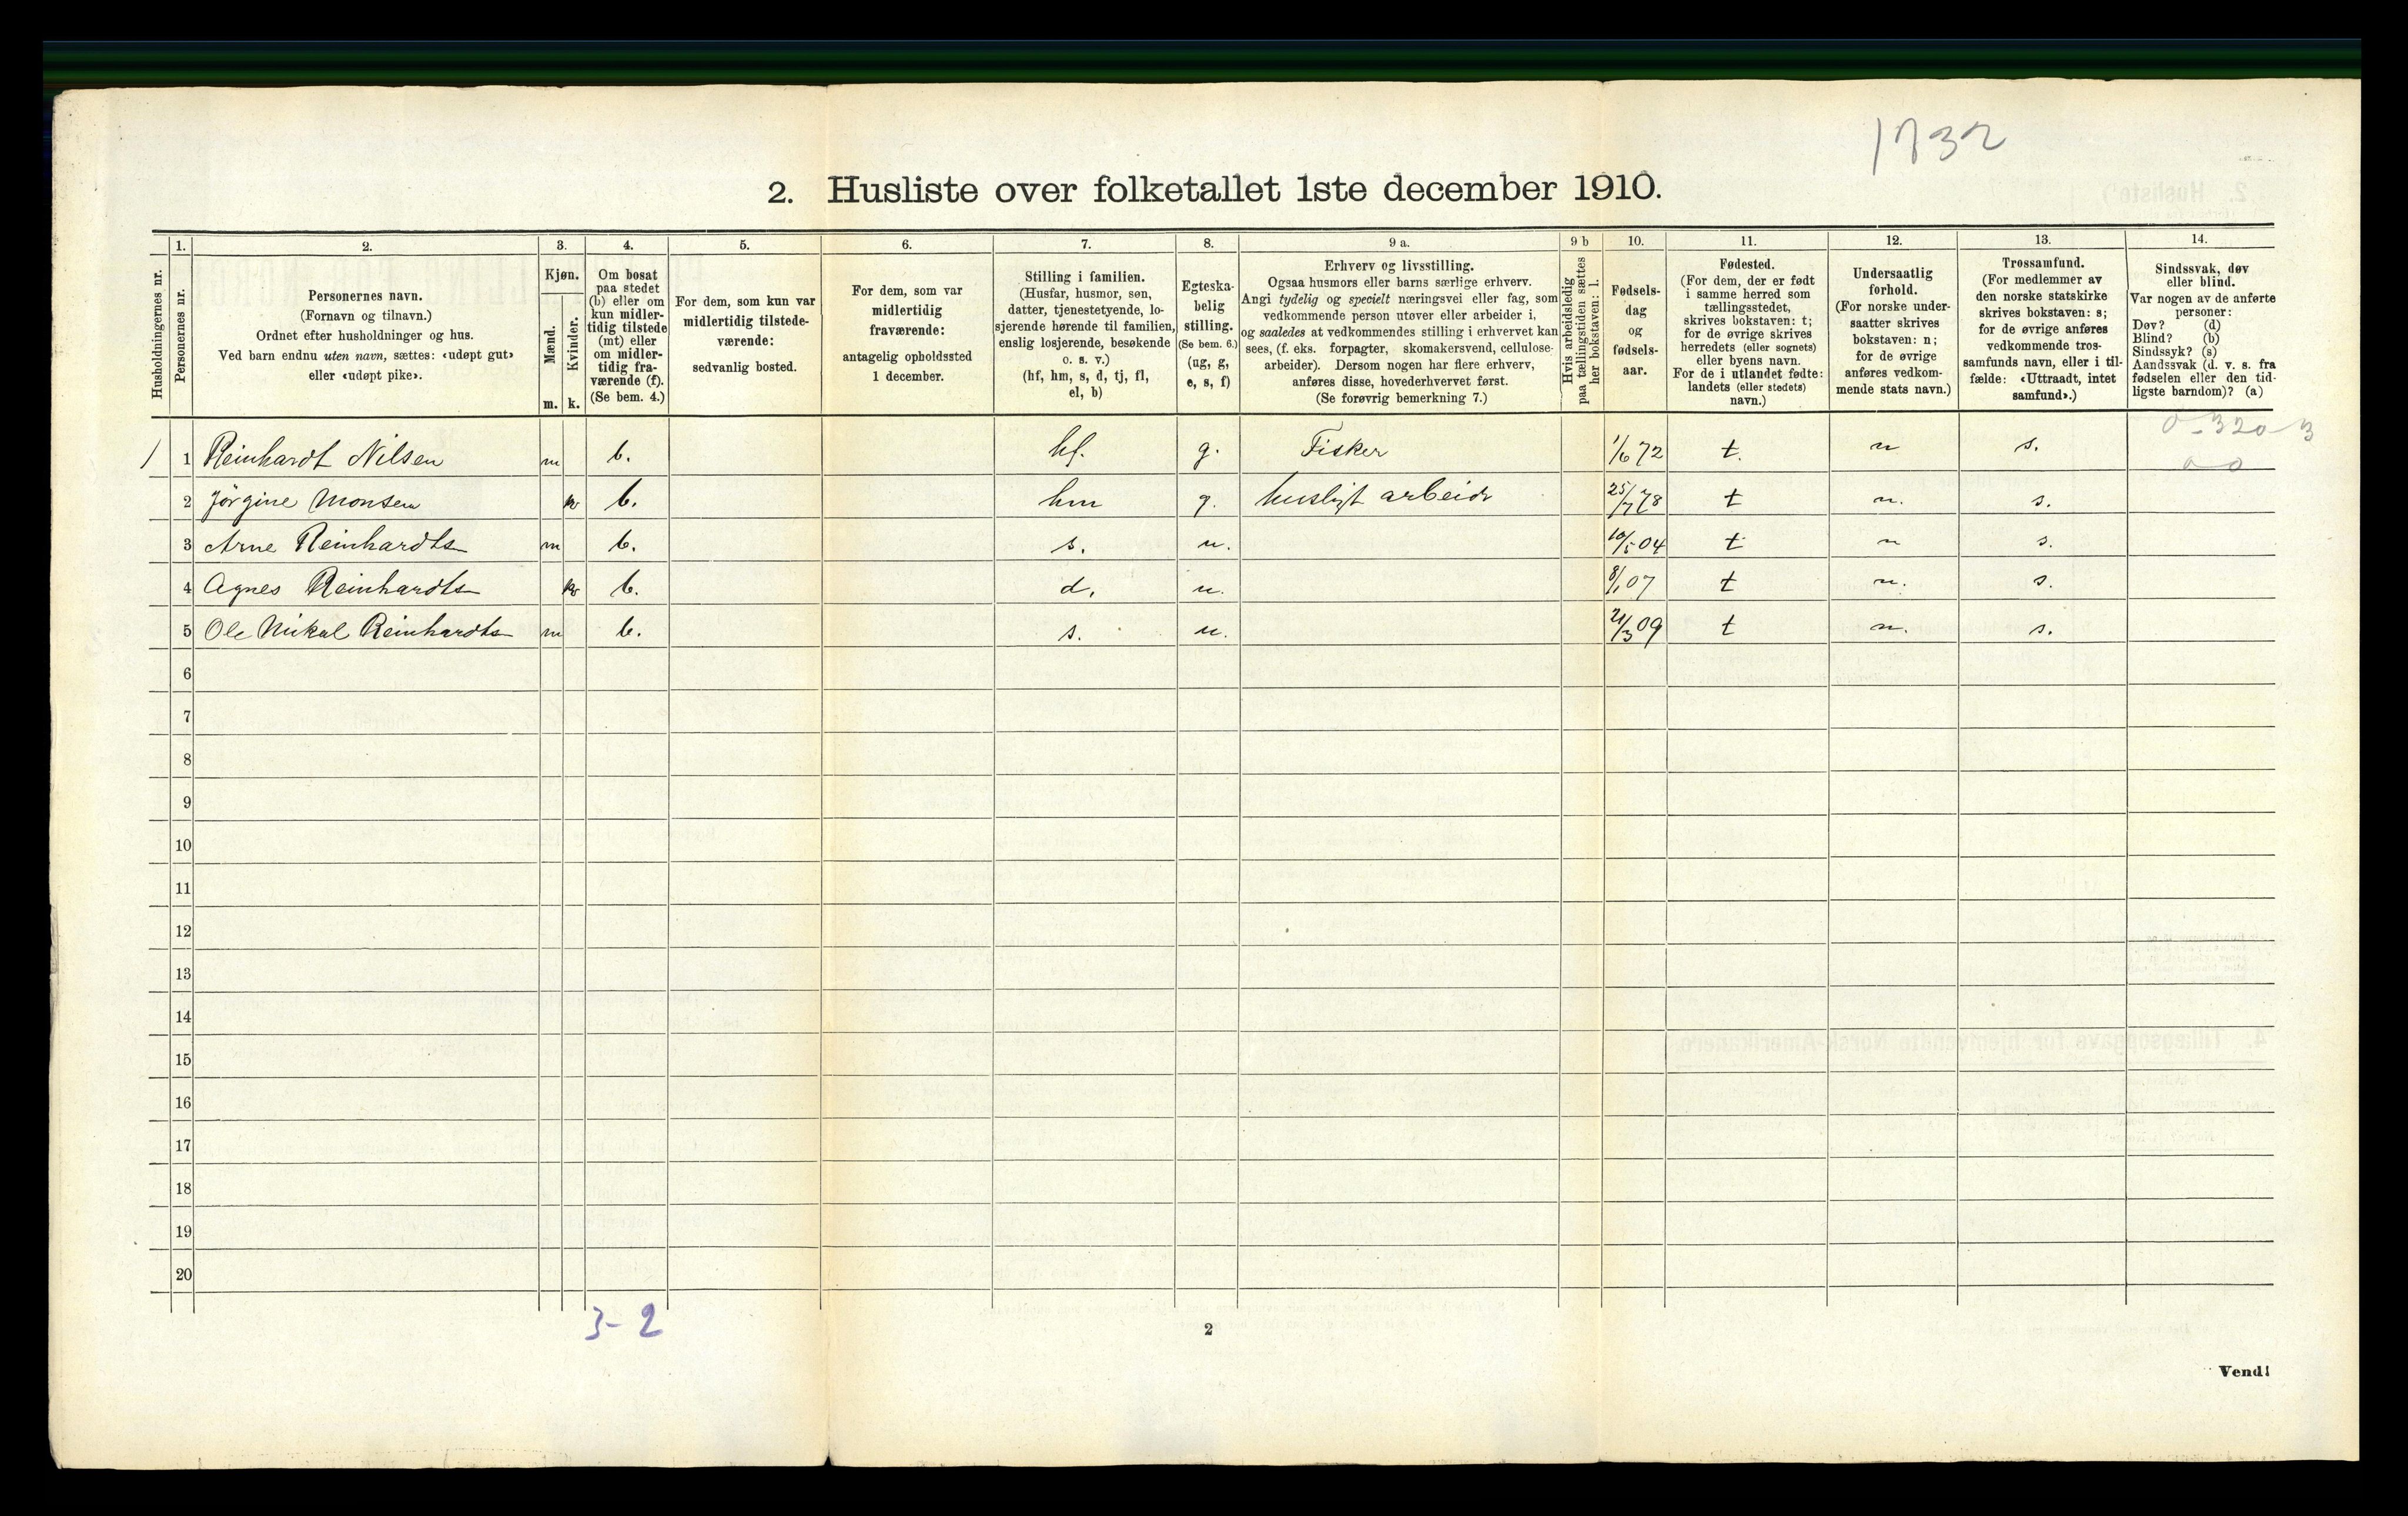 1732
2. Husliste over folketallet 1ste december 1910.
Husholdningernes nr.
1.
Personernes nr.
2.
Personernes navn.
(Fornavn og tilnavn.)
Ordnet efter husholdninger og hus.
Ved barn endnu uten navn, sættes: «udøpt gut»
eller «udøpt pike».
3.
Kjøn.
Mænd.
Kvinder.
m. k.
4.
Om bosat
paa stedet
(b) eller om
kun midler-
tidig tilstede
(mt) eller
om midler-
tidig fra-
værende (f).
(Se bem. 4.)
5.
For dem, som kun var
midlertidig tilstede-
værende:
sedvanlig bosted.
6.
For dem, som var
midlertidig
fraværende:
antagelig opholdssted
1 december.
7.
Stilling i familien.
(Husfar, husmor, søn,
datter, tjenestetyende, lo-
sjerende hørende til familien,
enslig losjerende, besøkende
o. s. v.)
(hf, hm, s, d, tj, fl,
el, b)
8.
Egteska-
belig
stilling.
(Se bem. 6.)
(ug, g,
e, s, f)
9 a.
Erhverv og livsstilling.
Ogsaa husmors eller barns særlige erhverv.
Angi tydelig og specielt næringsvei eller fag, som
vedkommende person utøver eller arbeider i,
og saaledes at vedkommendes stilling i erhvervet kan
sees, (f. eks. forpagter, skomakersvend, cellulose-
arbeider). Dersom nogen har flere erhverv,
anføres disse, hovederhvervet først.
(Se forøvrig bemerkning 7.)
9 b
Hvis arbeidsledig
paa tællingstiden sættes
her bokstaven: l.
10.
Fødsels-
dag
og
fødsels-
aar.
11.
Fødested.
(For dem, der er født
i samme herred som
tællingsstedet,
skrives bokstaven: t;
for de øvrige skrives
herredets (eller sognets)
eller byens navn.
For de i utlandet fødte:
landets (eller stedets)
navn.)
12.
Undersaatlig
forhold.
(For norske under-
saatter skrives
bokstaven: n;
for de øvrige
anføres vedkom-
mende stats navn.)
13.
Trossamfund.
(For medlemmer av
den norske statskirke
skrives bokstaven: s;
for de øvrige anføres
vedkommende tros-
samfunds navn, eller i til-
fælde: «Uttraadt, intet
samfund».)
14.
Sindssvak, døv
eller blind.
Var nogen av de anførte
personer:
Døv? (d)
Blind? (b)
Sindssyk? (s)
Aandssvak (d. v. s. fra
fødselen eller den tid-
ligste barndom)? (a)
0-320 3
00
1 1 Reinhardt Nilsen m b. hf. g. Fisker 1/6 72 t. n s.
2 Jörgine Monsen k b. hm g. husligt arbeide 25/7 78 t n. s.
3 Arne Reinhardts m b. s. u. 10/5 04 t n s.
4 Agnes Reinhardts k b. d. u. 8/1 07 t n. s.
5 Ole Nikal Reinhardts m b. s. u. 21/3 09 t n. s.
6
7
8
9
10
11
12
13
14
15
16
17
18
19
20
3-2
2
Vend!